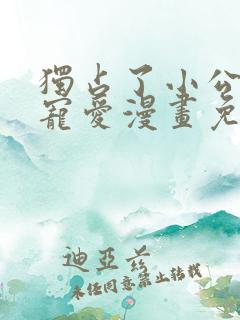 獨占了小公
寵愛漫畫免
迪亞爺
未經同意禁止轉載